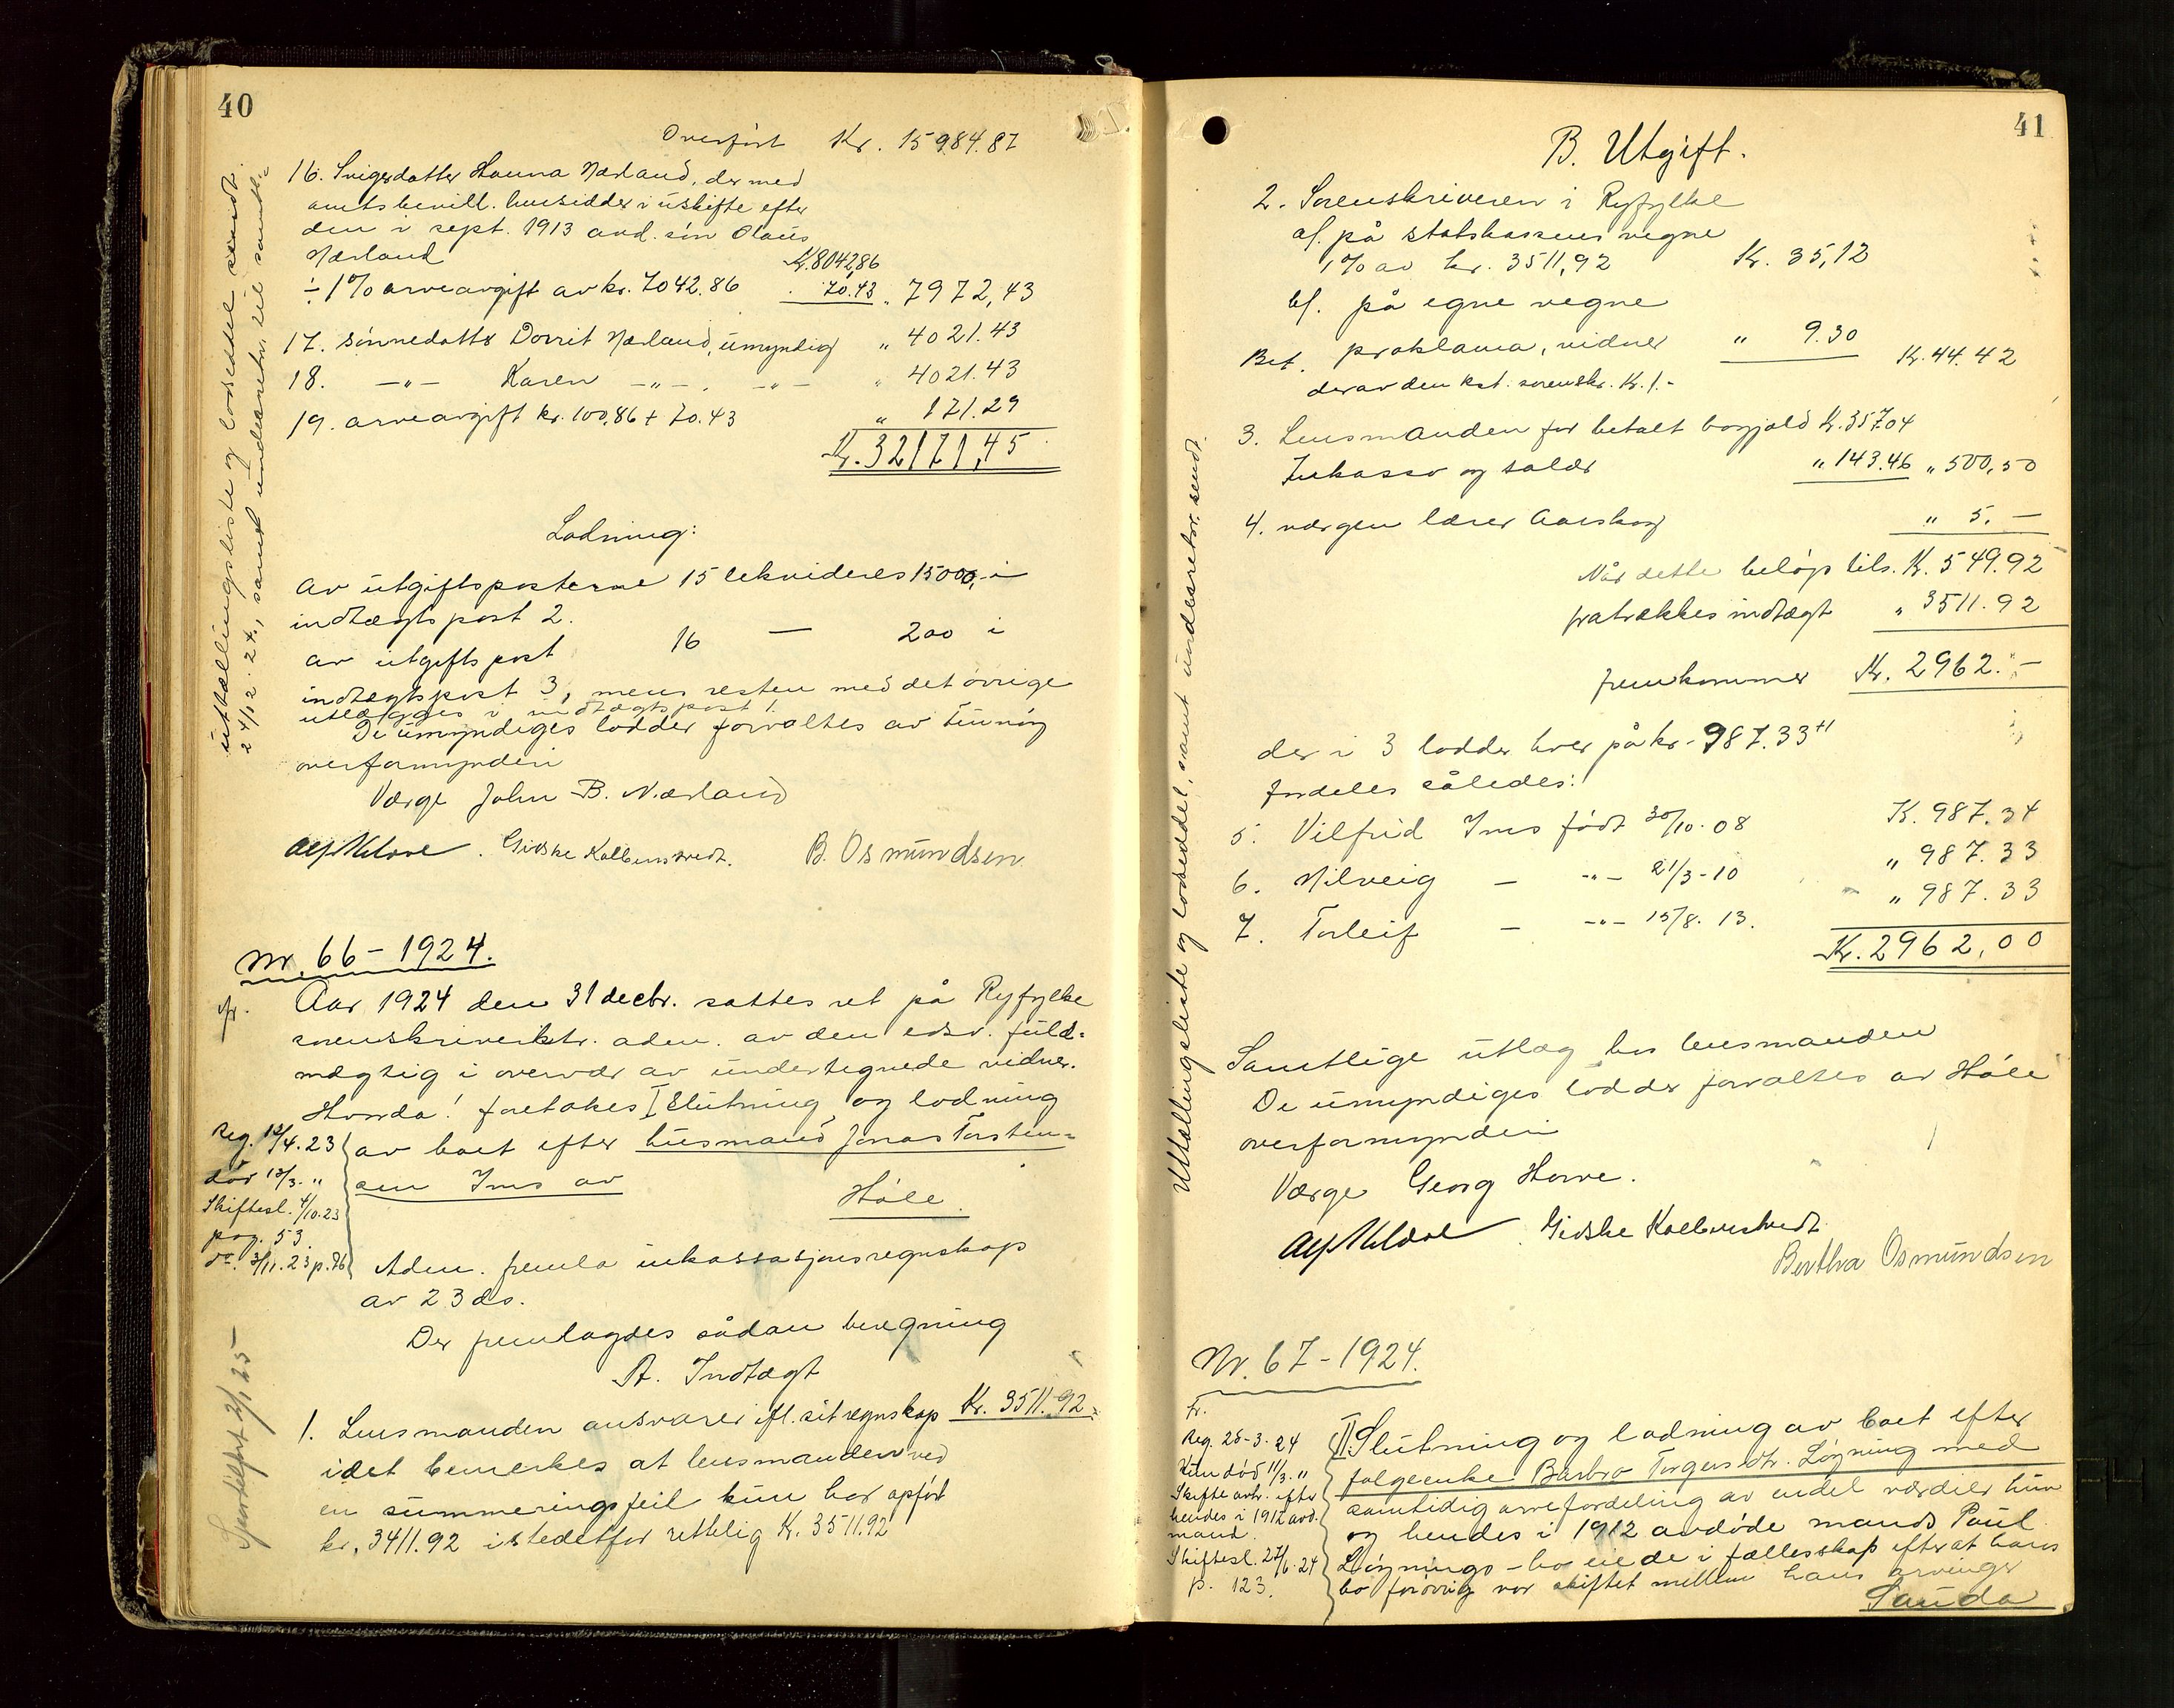 40
Overført Kr. 15984.87
16. Svigerdatter Hanna Nærland, der med
amtsbevill. hensidder i uskifte efter
den i sept. 1913 avd. søn Olaus
Nærland Kr. 8042.86
÷ 1% arveavgift av kr. 7042.86 " 70.43 " 7972,43
17. sønnedatter Dorrit Nærland, umyndig " 4021.43
18. —"— Karen —"—, —"— " 4021.43
19. arveavgift kr. 100,86 + 70.43 " 171.29
Kr. 32171,45
Lodning:
Av utgiftsposterne 15 lekvideres 15000,- i
indtægtspost 2.
av utgiftspost 16 — 200 i
indtægtspost 3, mens resten med det øvrige
utlægges i indtægtspost 1.
De umyndiges lodder forvaltes av
overformynderi
Værge John B. Nærland
Gidske Kolbenstvedt. B. Osmundsen
uttællingsliste og lodseddel sendt
24/12. 24, samt underretn. til samtl.
Nr. 66 – 1924.
fr.
Aar 1924 den 31 decbr. sattes ret på Ryfylke
sorenskriverktr. adm. av den edsv. fuld-
mægtig i overvær av undertegnede vidner.
Hvorda! foretokes I Slutning og lodning
av boet efter husmand Jonas Torsten-
sen Ims av
Høle.
Reg. 12/4. 23
død 13/3. "
Skiftesl. 4/10.23
pag. 53.
do. 3/11. 23 p. 76
Adm. fremla inkassasjonsregnskap
av 23 ds.
Der fremlagdes sådan beregning
A. Indtægt
1. Lensmanden ansvarer ifl. sit regnskap Kr. 3511.92
idet bemerkes at lensmanden ved
en summeringsfeil kun har opført
kr. 3411.92 istedetfor rettelig Kr. 3511.92
2/1 25
41
B. Utgift.
2. Sorenskriveren i Ryfylke
a/. på statskassens vegne
1% av kr. 3511,92 Kr. 35,12
b/. på egne vegne
Bet. proklama, vidner " 9.30 Kr. 44.42
derav den kst. sorenskr. Kr. 1.-
3. Lensmanden for betalt bogjæld Kr. 357.04
Inkasso og salær " 143.46 " 500,50
4. værgen lærer Aarskog " 5. —
Når dette beløp tils. Kr. 549.92
fratrækkes indtægt " 3511.92
fremkommer Kr. 2962. –
der i 3 lodder hver på kr. 987.33 +1
fordeles således:
5. Vilfrid Ims født 30/10. 08 K. 987.34
6. Milveig — —"— 21/3 - 10 " 987.33
7. Torleif — —"— 15/8. 13. " 987.33
Kr. 2962,00
Samtlige utlæg hos lensmanden
De umyndiges lodder forvaltes av Høle
overformynderi
Værge Georg Horve.
Gidske Kolbenstvedt
Bertha Osmundsen
Uttællingsliste og lodseddel, samt underretn. sendt.
Nr. 67 – 1924.
Fr.
Reg. 28-3. 24
Kun død 11/3. "
Skifte avh. efter
hendes i 1912 avd.
mand.
Skiftesl. 27/6. 24
p. 123.
II Slutning og lodning av boet efter
følgeenke Barbro Torgersdtr. Løyning med
samtidig arvefordeling av endel værdier hun
og hendes i 1912 avdøde mand Paul
Løynings bo eiede i fællesskap efter at hans
bo forøvrig var skiftet mellem hans arvinger
Sauda